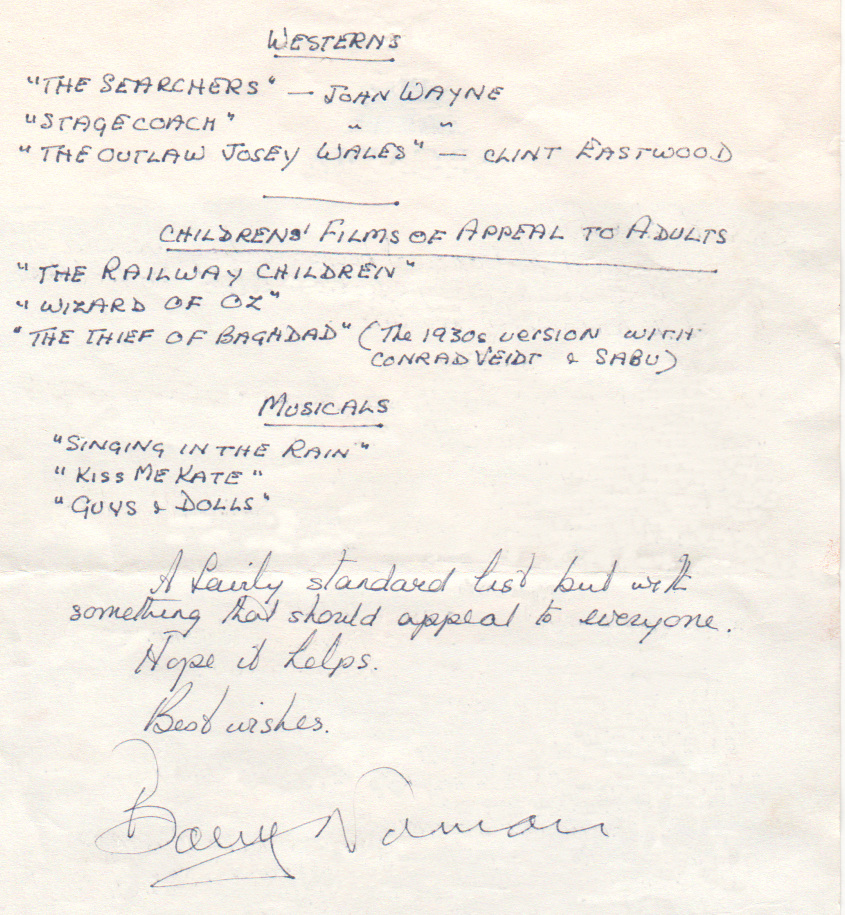 WESTERNS
"THE SEARCHERS" — JOHN WAYNE
"STAGECOACH" " "
"THE OUTLAW JOSEY WALES" — CLINT EASTWOOD
CHILDRENS' FILMS OF APPEAL TO ADULTS
"THE RAILWAY CHILDREN"
"WIZARD OF OZ"
"THE THIEF OF BAGHDAD" (The 1930s version WITH
CONRAD VEIDT & SABU)
MUSICALS
"SINGING IN THE RAIN"
"KISS ME KATE"
"GUYS & DOLLS"
A fairly standard list but with
something that should appeal to everyone.
Hope it helps.
Best wishes.
Barry Norman